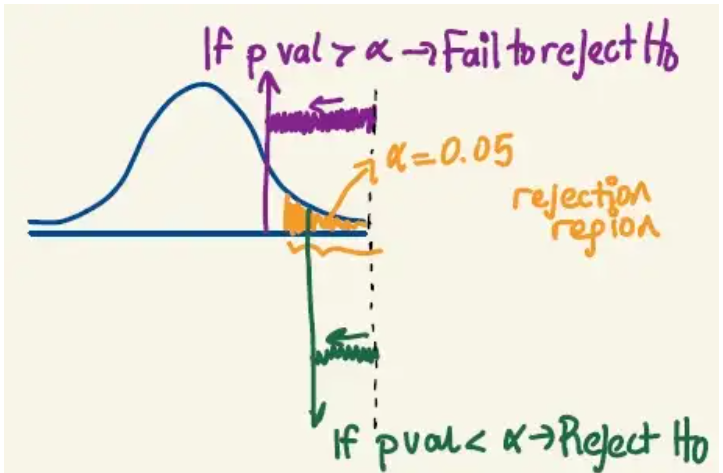 If p val > α → Fail to reject H0
α = 0.05
rejection
region
If p val < α → Reject H0